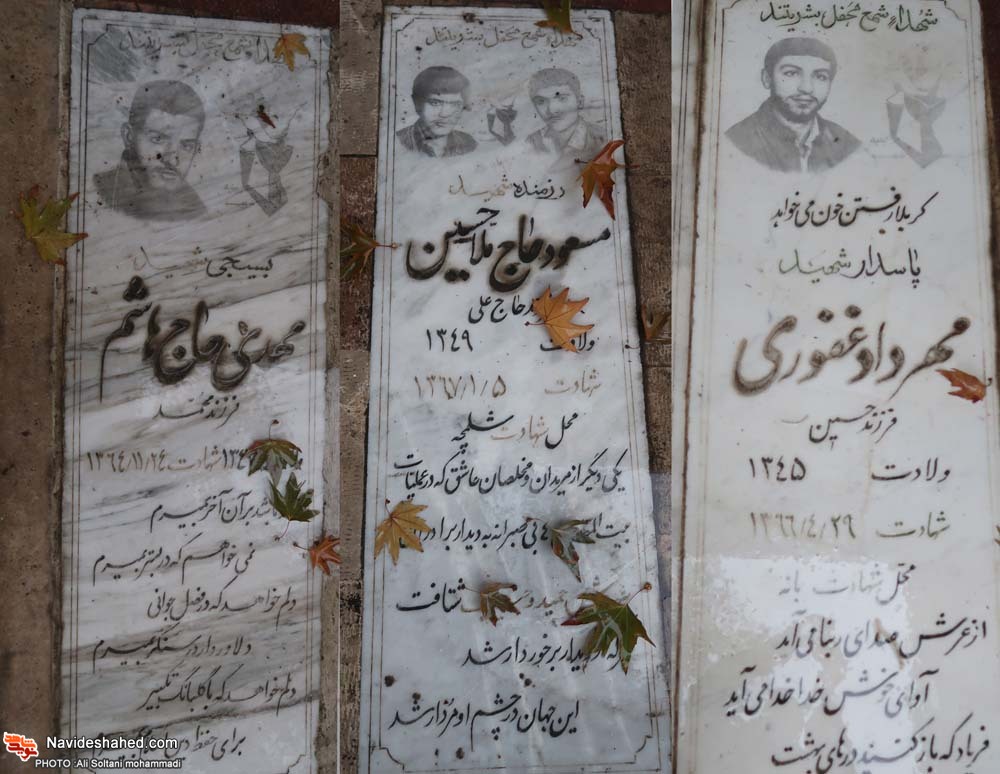 شهداء شمع محفل بشریتند
بسیجی شهید
مهدی حاج هاشم
فرزند محمد
شهادت ۱۳۶۴/۱۱/۲۴
بر آن آخر بمیرم
نمی خواهم که در بستر بمیرم
دلم خواهد که در فصل جوانی
دلاور وار در سنگر بمیرم
دلم خواهد که با گلبانگ تکبیر
برای حفظ
شهداء شمع محفل بشریتند
رزمنده شهید
مسعود حاج ملا حسین
حاج علی
ولادت ۱۳۴۹
شهادت ۱۳۶۷/۱/۵
محل شهادت شلمچه
یکی دیگر از مریدان و مخلصان عاشق که در عملیات
بیت بی صبرانه به دیدار برادران
حمید و شتافت
دیدار برخوردار شد
این جهان در چشم او مردار شد
شهداء شمع محفل بشریتند
کربلا رفتن خون می خواهد
پاسدار شهید
مهرداد غفوری
فرزند حسین
ولادت ۱۳۴۵
شهادت ۱۳۶۶/۴/۲۹
محل شهادت بانه
از عرش صدای ربنا می آید
آوای خوش خدا خدا می آید
فریاد که باز کنید درهای بهشت
Navideshahed.com
PHOTO :Ali Soltani mohammadi